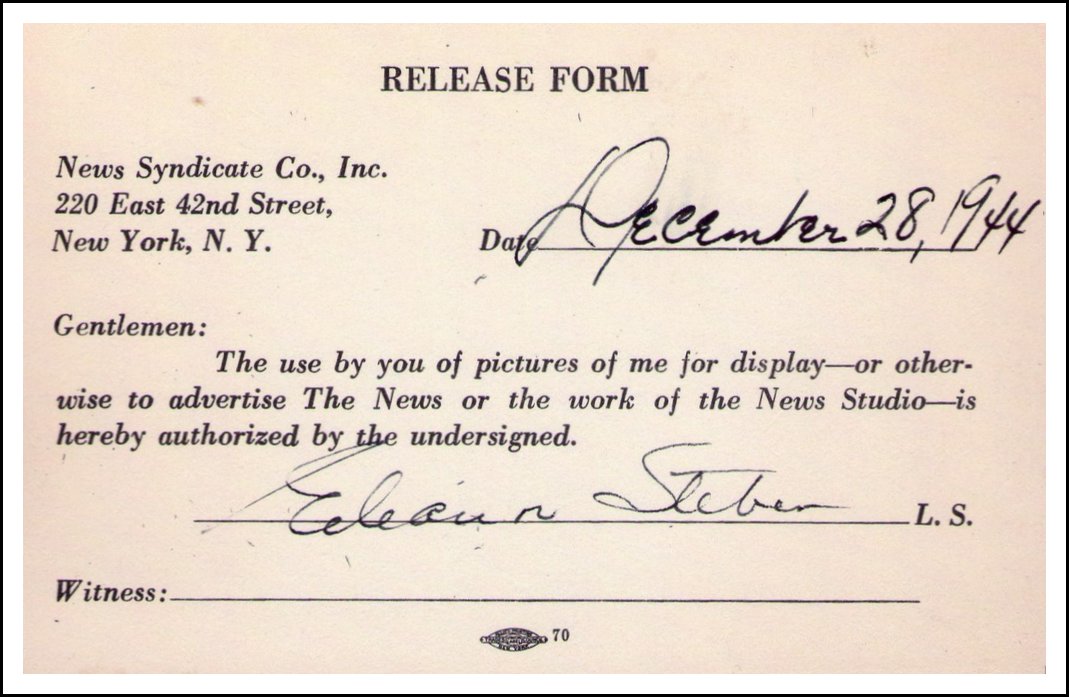 RELEASE FORM
News Syndicate Co., Inc.
220 East 42nd Street,
New York, N. Y.
Date December 28, 1944
Gentlemen:
The use by you of pictures of me for display—or other-
wise to advertise The News or the work of the News Studio—is
hereby authorized by the undersigned.
Eleanor Steber L. S.
Witness:
70